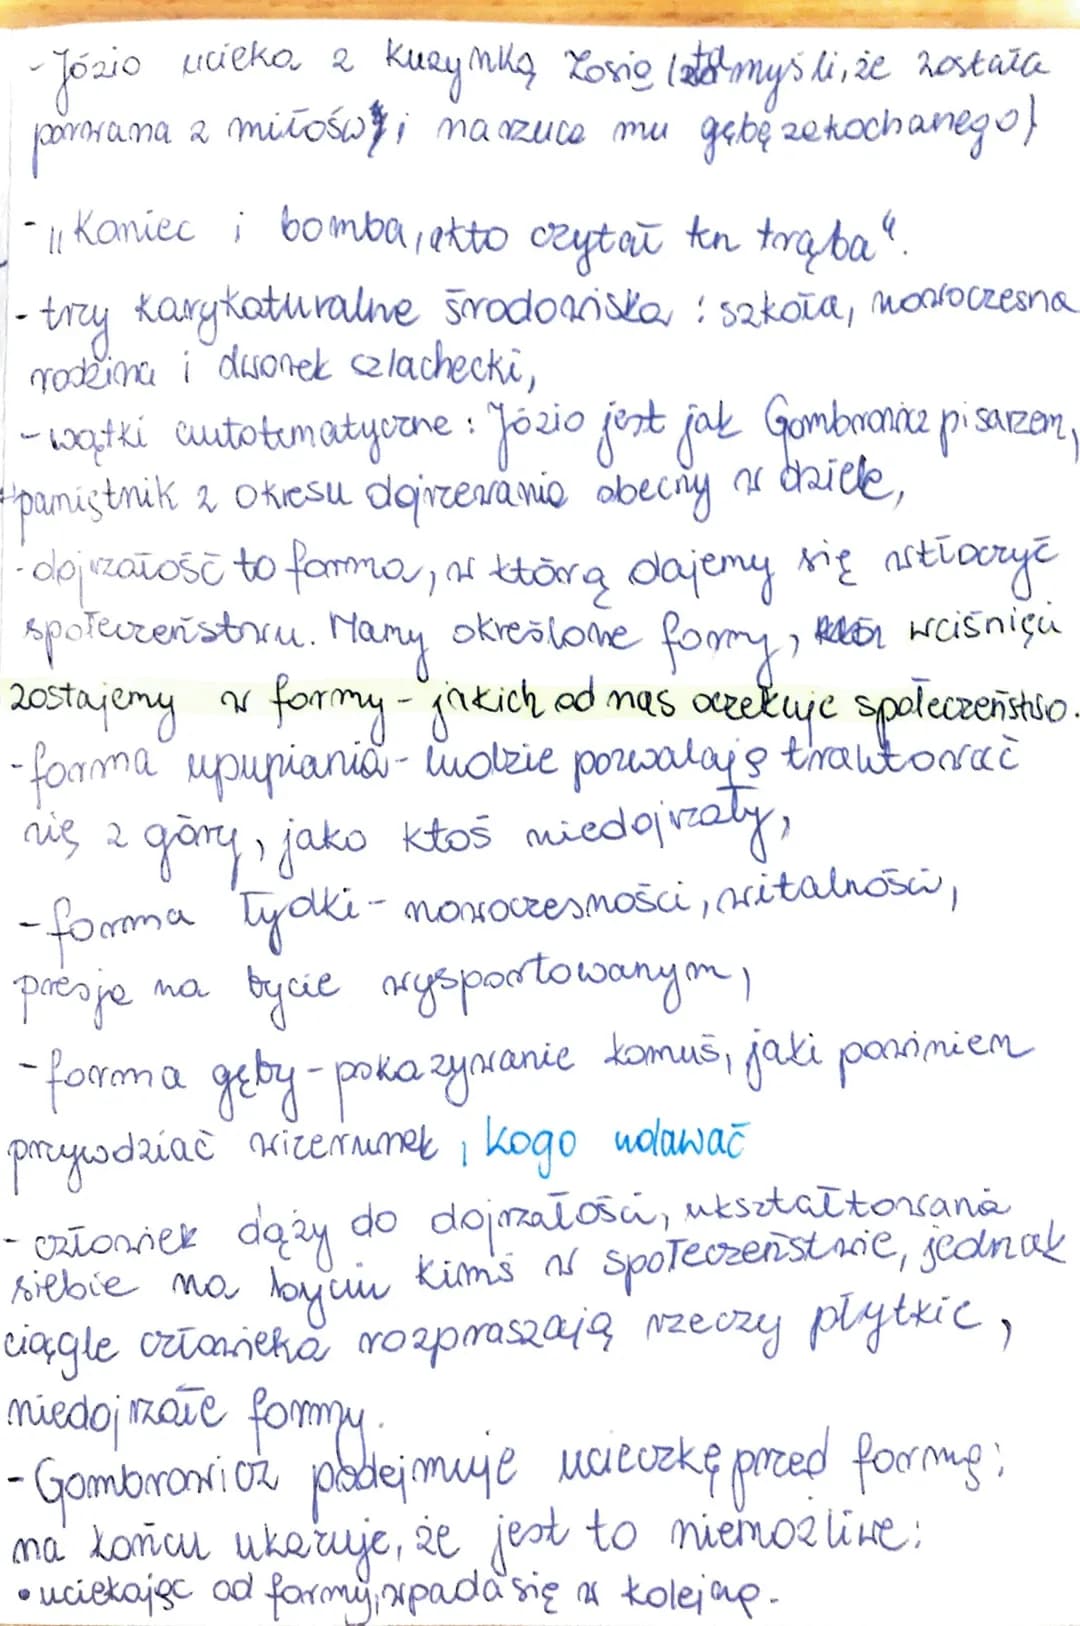 - Józio ucieka z kuzynką Zosią (ta myśli, że została
porwana z miłości i narzuca mu gębę zakochanego)
- "Koniec i bomba, a kto czytał ten trąba".
- trzy karykaturalne środowiska: szkoła, nowoczesna
rodzina i dworek szlachecki,
- wątki autotematyczne: Józio jest jak Gombrowicz pisarzem,
pamiętnik z okresu dojrzewania obecny w dziele,
- dojrzałość to forma, w którą dajemy się wtłoczyć
społeczeństwu. Mamy określone formy, wciśnięci
zostajemy w formy - jakich od nas oczekuje społeczeństwo.
- forma upupiania - ludzie pozwalają traktować
się z góry, jako ktoś niedojrzały,
- forma łydki - nowoczesności, witalności,
presja na bycie wysportowanym,
- forma gęby - pokazywanie komuś, jaki powinien
przywdziać wizerunek, kogo udawać
- człowiek dąży do dojrzałości, ukształtowania
siebie na byciu kimś w społeczeństwie, jednak
ciągle człowieka rozpraszają rzeczy płytkie,
niedojrzałe formy.
- Gombrowicz podejmuje ucieczkę przed formą;
na końcu ukazuje, że jest to niemożliwe:
• uciekając od formy, wpada się w kolejną.